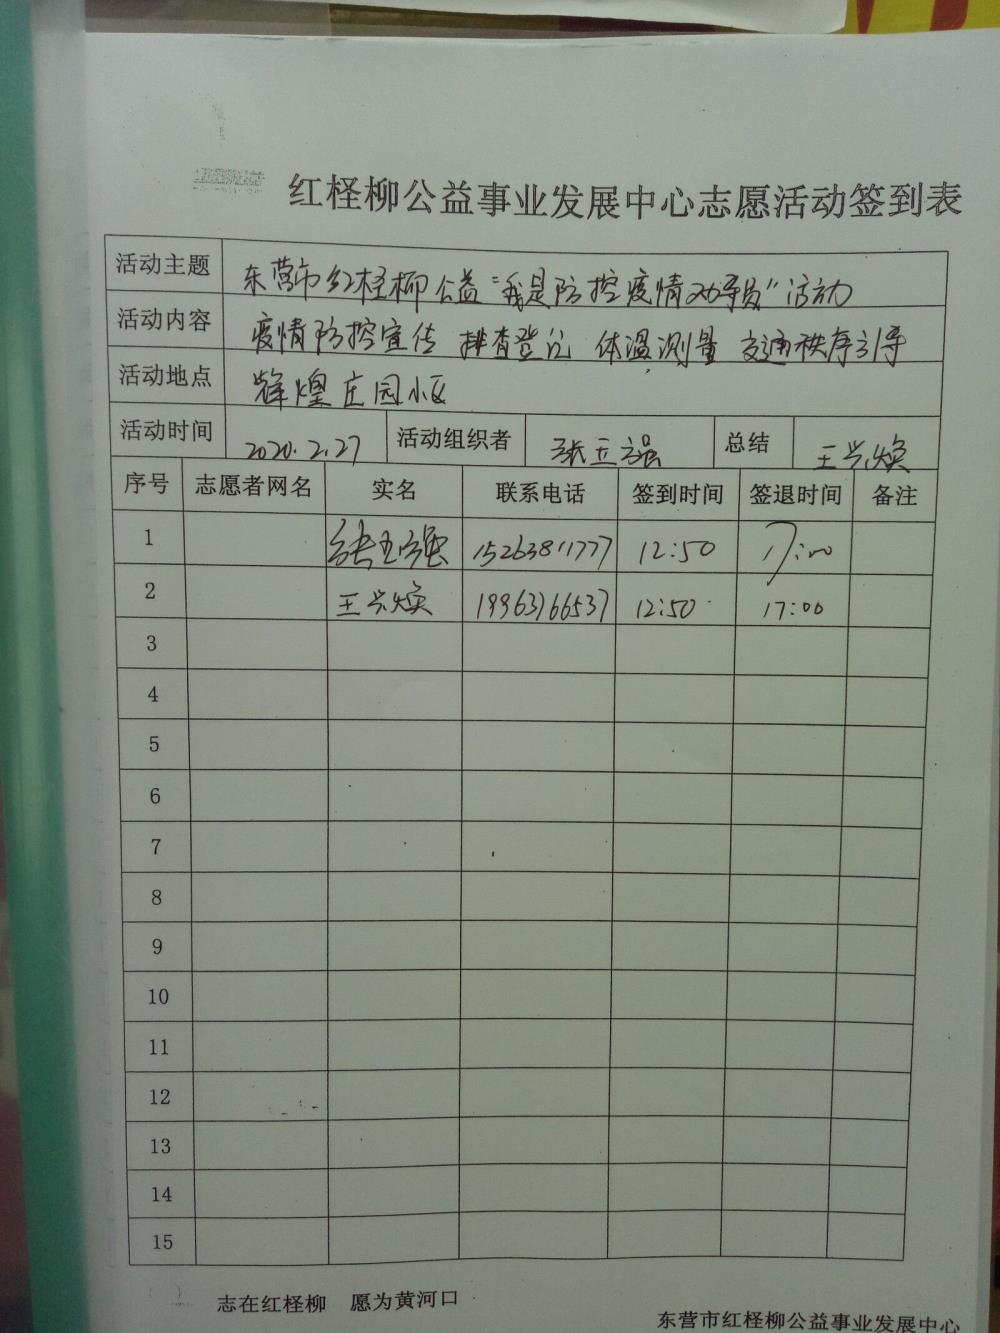 红柽柳公益事业发展中心志愿活动签到表
活动主题 东营市红柽柳公益“我是防控疫情劝导员”活动
活动内容 疫情防控宣传 排查登记 体温测量 交通秩序引导
活动地点 辉煌庄园小区
活动时间 2020.2.27 活动组织者 张立强 总结 王兴焕
序号 志愿者网名 实名 联系电话 签到时间 签退时间 备注
1 张立强 15263811777 12:50 17:00
2 王兴焕 19963766537 12:50 17:00
3
4
5
6
7
8
9
10
11
12
13
14
15
志在红柽柳 愿为黄河口
东营市红柽柳公益事业发展中心